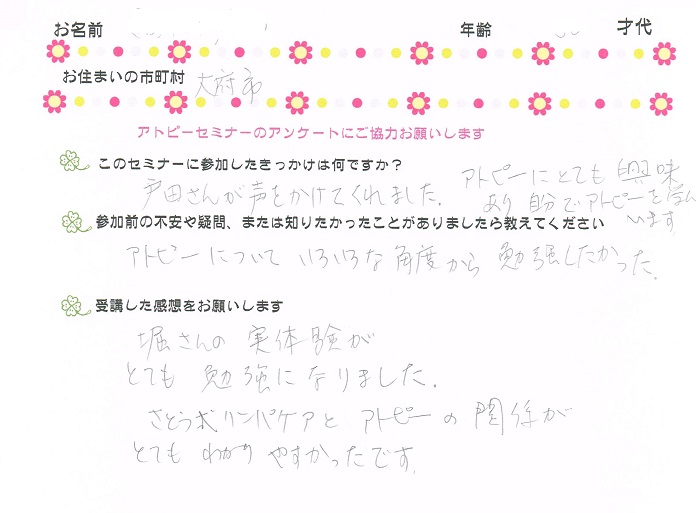 お名前 年齢 才代
お住まいの市町村 大府市
アトピーセミナーのアンケートにご協力お願いします
このセミナーに参加したきっかけは何ですか?
戸田さんが声をかけてくれました。アトピーにとても興味
あり 自分でアトピーを学んで
います
参加前の不安や疑問、または知りたかったことがありましたら教えてください
アトピーについて いろいろな角度から 勉強したかった。
受講した感想をお願いします
堀さんの 実体験が
とても 勉強になりました。
さとう式リンパケアと アトピーの 関係が
とても わかりやすかったです。